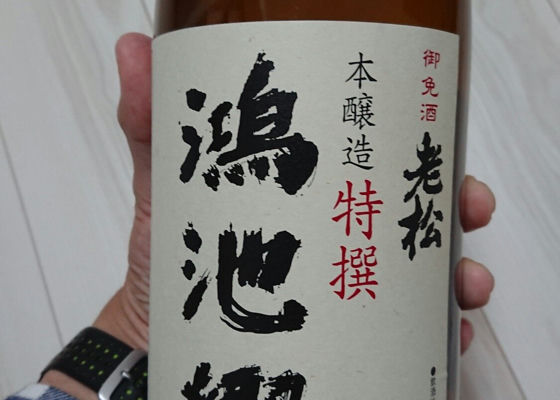 御免酒
老松
本醸造
特撰
鴻池